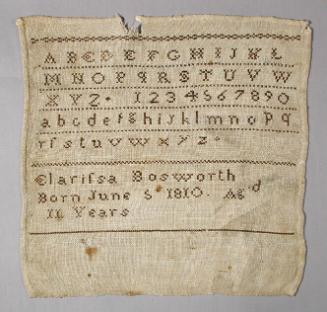 A B C D E F G H I J K L
M N O P Q R S T U V W
X Y Z . 1 2 3 4 5 6 7 8 9 0
a b c d e f g h i j k l m n o p q
r ſ s t u v w x y z .
Clariſsa Bosworth
Born June 5 1810. Agd
11 Years